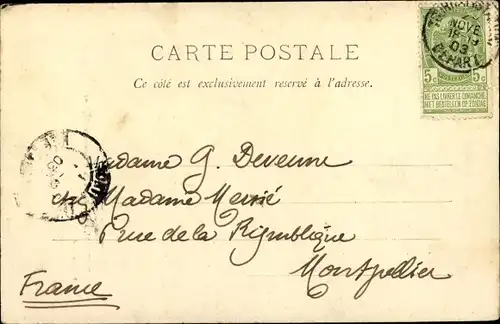 NOVE
18
03
DEPART
5c 5c
NE PAS LIVRER LE DIMANCHE
NIET BESTELLEN OP ZONDAG
CARTE POSTALE
Ce côté est exclusivement reservé à l'adresse.
Madame G. Devenne
chez Madame Merrié
rue de la République
Montpellier
France